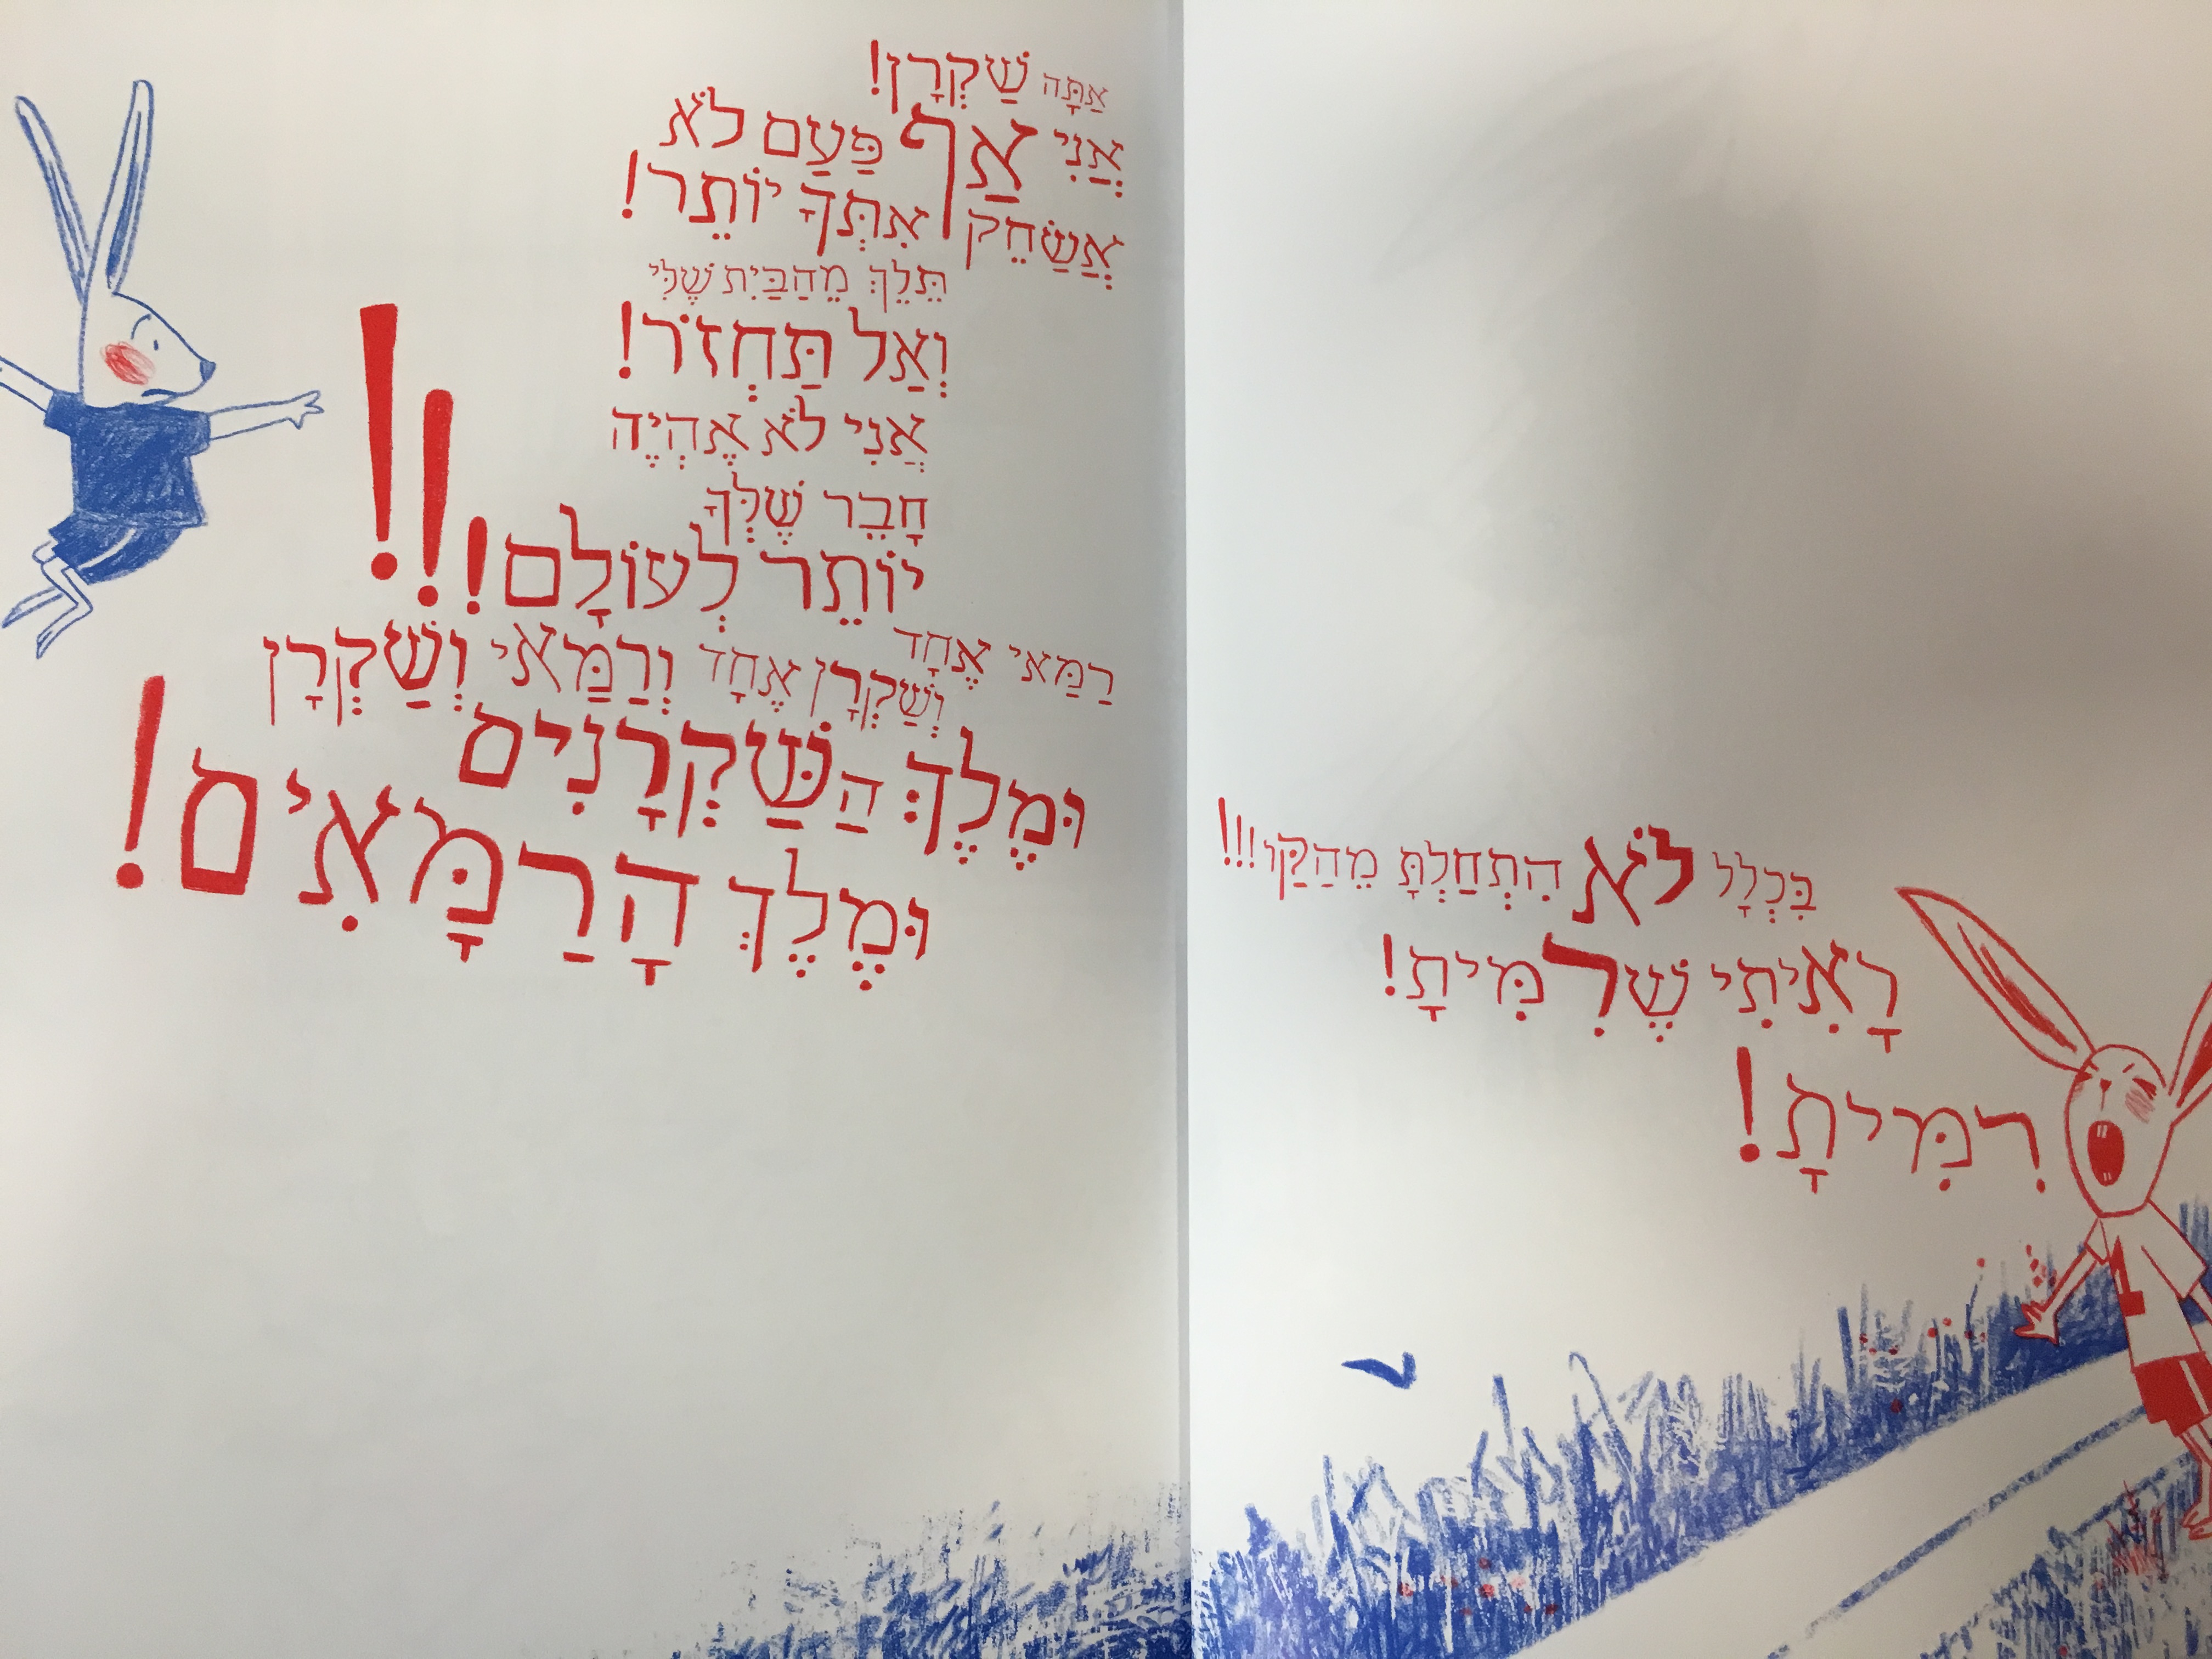 רִמִּיתָ!
רָאִיתִי שֶׁרִמִּיתָ!
בִּכְלָל לֹא הִתְחַלְתָּ מֵהַקַּו!!!
אַתָּה שַׁקְרָן!
אֲנִי אַף פַּעַם לֹא
אֲשַׂחֵק אִתְּךָ יוֹתֵר!
תֵּלֵךְ מֵהַבַּיִת שֶׁלִּי
וְאַל תַּחְזֹר!
אֲנִי לֹא אֶהְיֶה
חָבֵר שֶׁלְּךָ
יוֹתֵר לְעוֹלָם!!!
רַמַּאי אֶחָד
וְשַׁקְרָן אֶחָד וְרַמַּאי וְשַׁקְרָן
וּמֶלֶךְ הַשַּׁקְרָנִים
וּמֶלֶךְ הָרַמָּאִים!